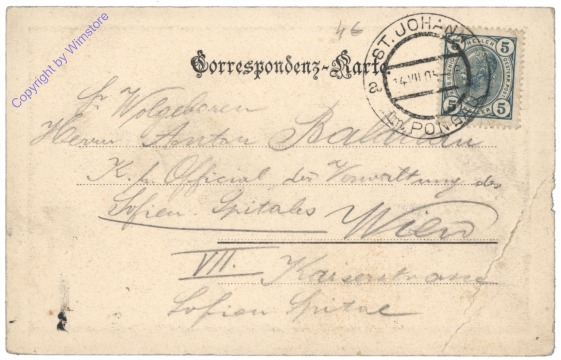 Copyright by Wimstore
46
Correspondenz-Karte
ST. JOHANN
im PONGAU
14 VII 05
5 HELLER 5
5 5
Sr Wolgeboren
Herrn Anton
K. k. Official der Verwaltung des
Sofien-Spitales Wien
VII. Kaiserstrasse
Sofien Spital